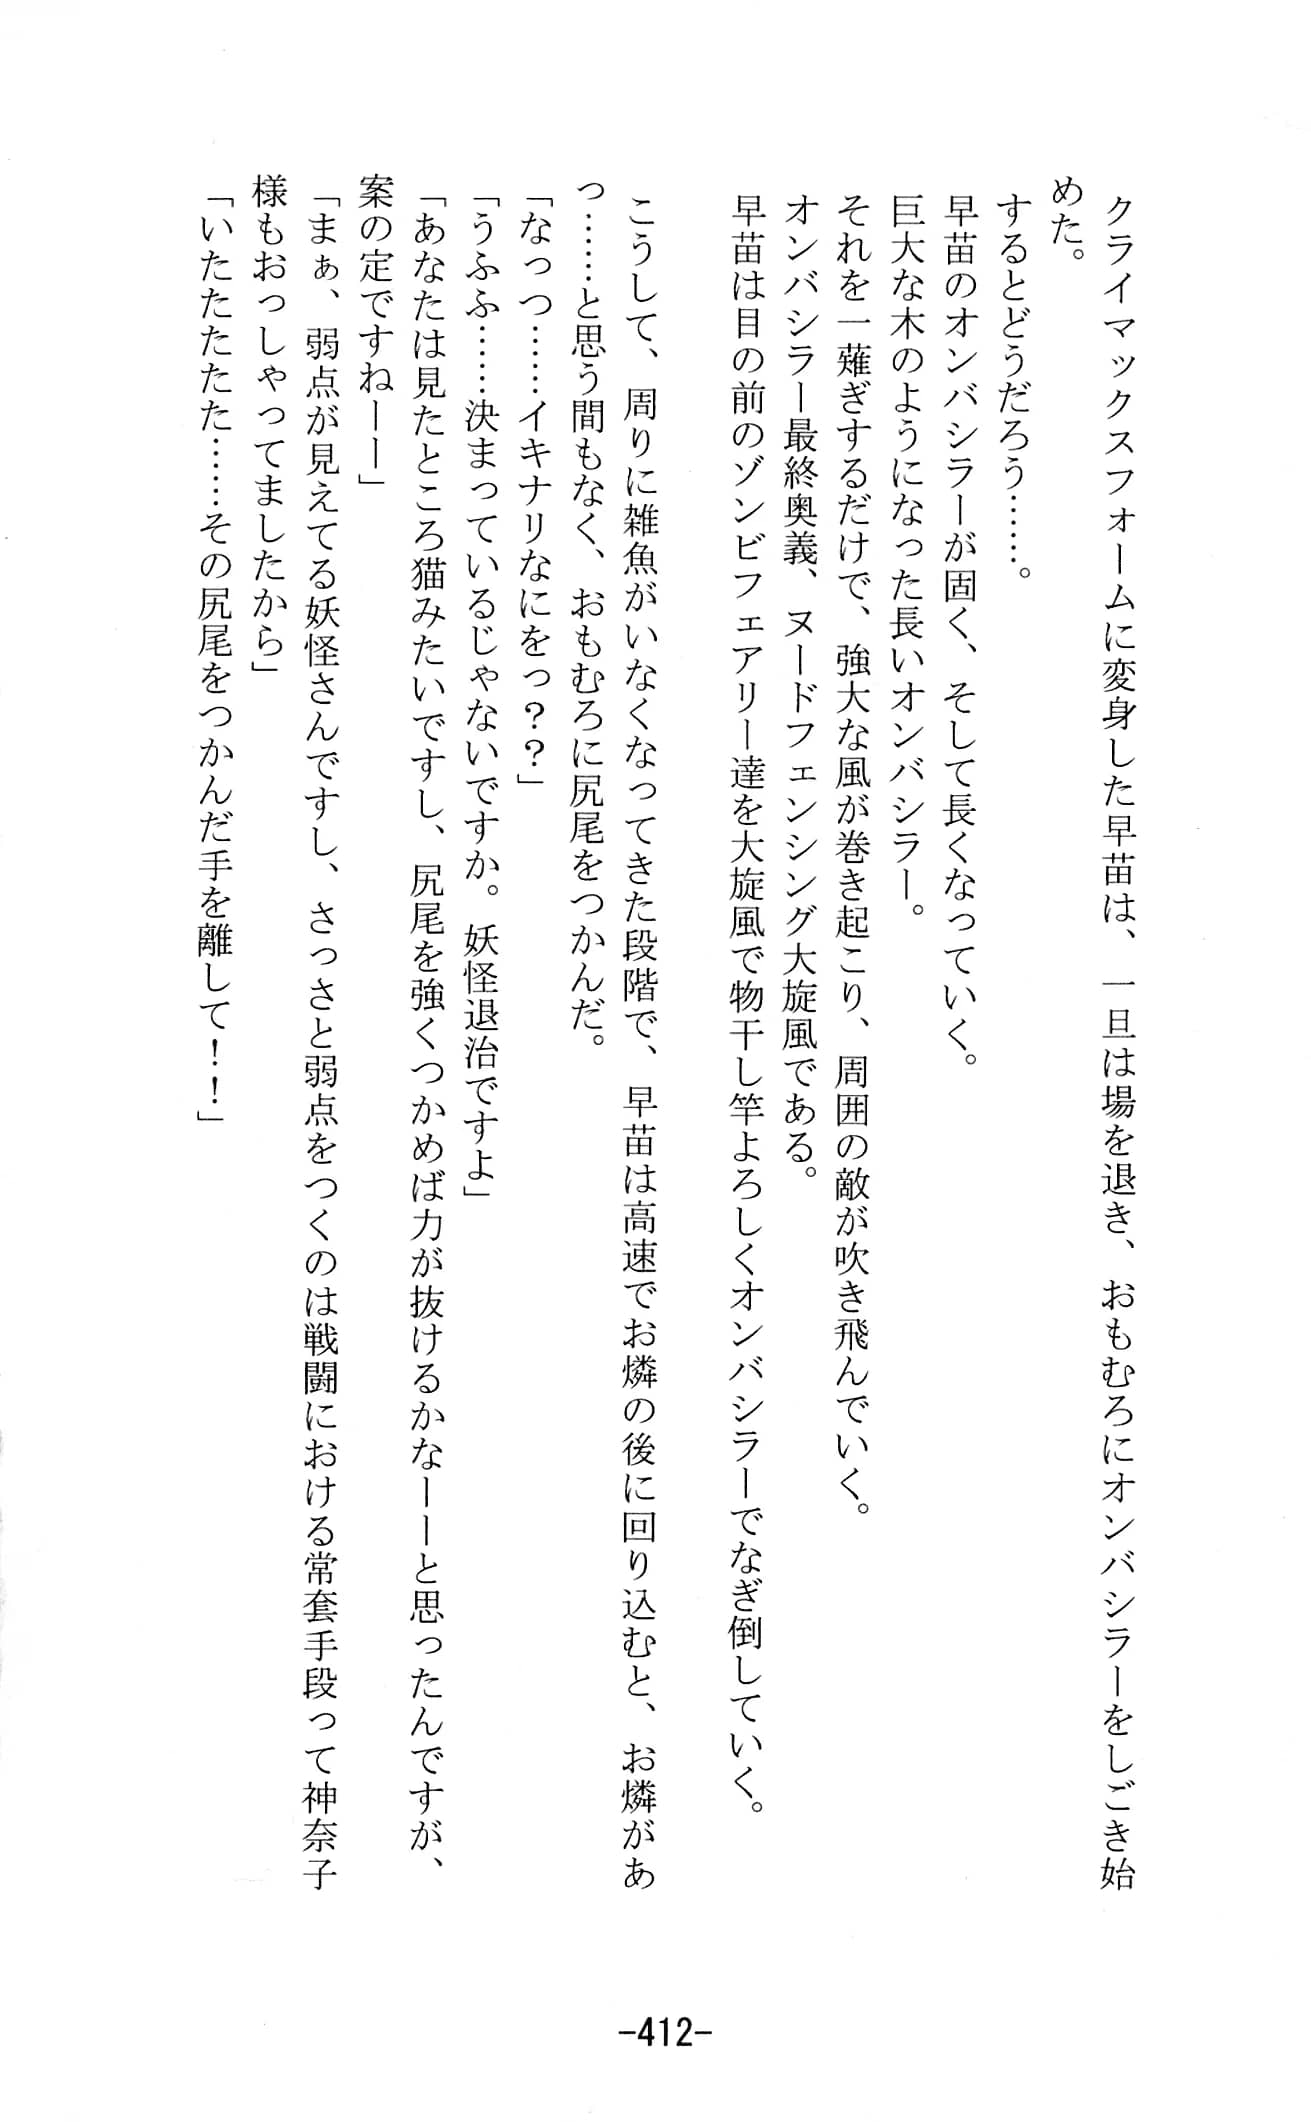 クライマックスフォームに変身した早苗は、一旦は場を退き、おもむろにオンバシラーをしごき始
めた。
するとどうだろう……。
早苗のオンバシラーが固く、そして長くなっていく。
巨大な木のようになった長いオンバシラー。
それを一薙ぎするだけで、強大な風が巻き起こり、周囲の敵が吹き飛んでいく。
オンバシラー最終奥義、ヌードフェンシング大旋風である。
早苗は目の前のゾンビフェアリー達を大旋風で物干し竿よろしくオンバシラーでなぎ倒していく。
こうして、周りに雑魚がいなくなってきた段階で、早苗は高速でお燐の後に回り込むと、お燐があ
っ……と思う間もなく、おもむろに尻尾をつかんだ。
「なっつ……イキナリなにをっ？？」
「うふふ……決まっているじゃないですか。妖怪退治ですよ」
「あなたは見たところ猫みたいですし、尻尾を強くつかめば力が抜けるかなーーと思ったんですが、
案の定ですねーー」
「まぁ、弱点が見えてる妖怪さんですし、さっさと弱点をつくのは戦闘における常套手段って神奈子
様もおっしゃってましたから」
「いたたたたた……その尻尾をつかんだ手を離して！！」
-412-